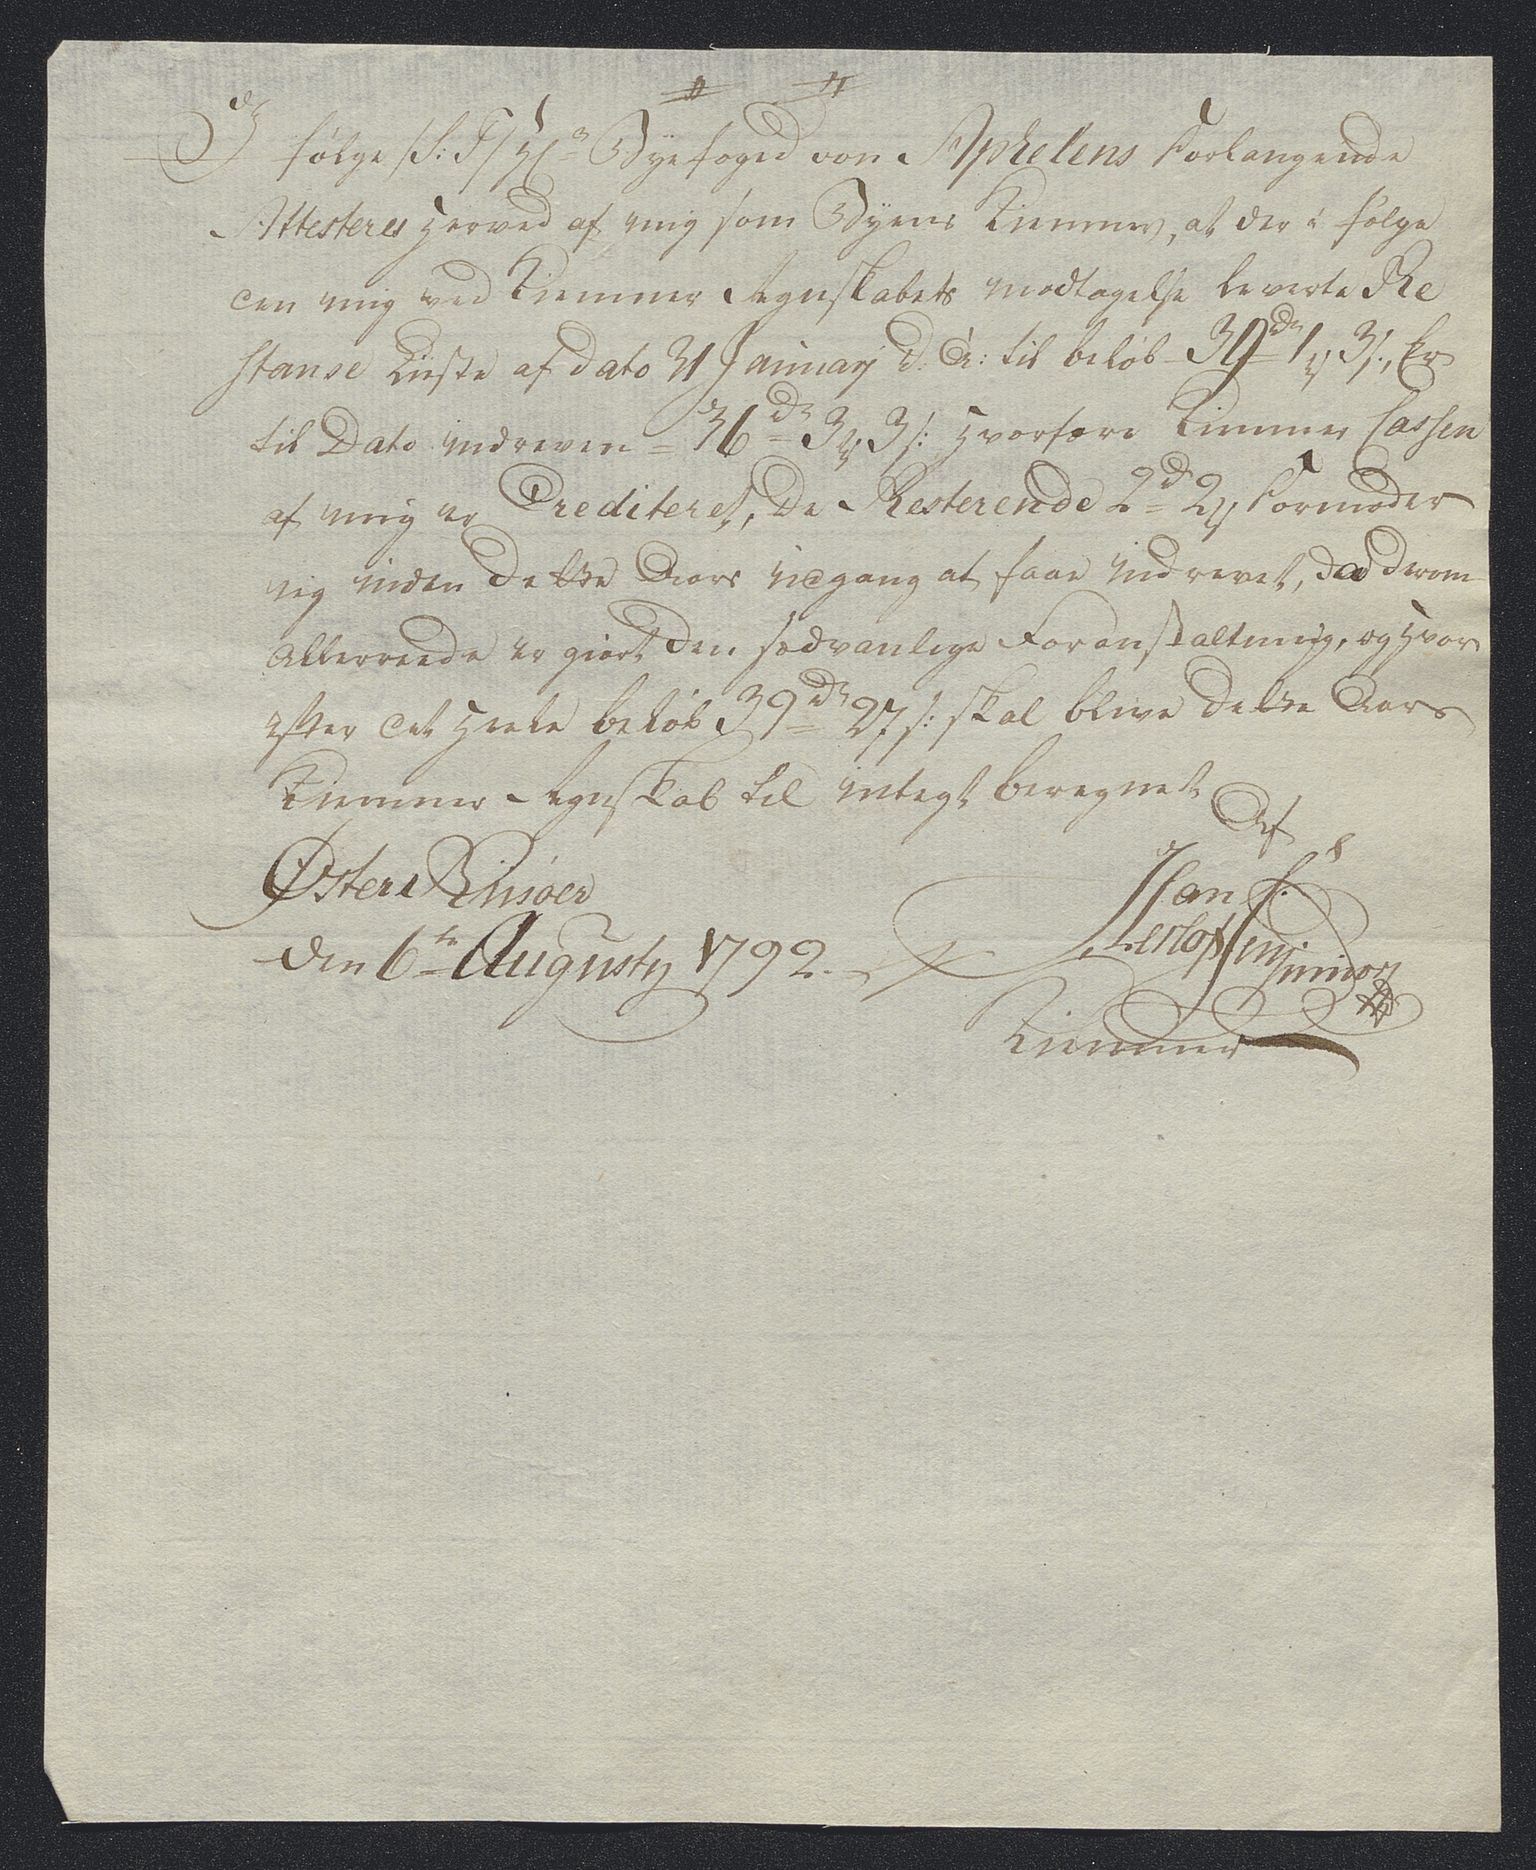 I følge S: T: Hr Byefoged von Aphelens Forlangende
Attesteres herved af mig som Byens Kiemner, at der i følge
den mig ved Kiemner Regnskabets modtagelse leverte Re
stanse Liste af dato 31 January d: A: til beløb 39 rd 1 3 s:, Er
til Dato inddreven = 36 rd 3 3 s: hvorfore Kiemner Cassen
af mig er Crediteret, De Resterende 2 rd 2 Formoder
ieg inden dette Aars udgang at faae inddrevet, da derom
allerreede er giort den sædvanlige Foranstaltning, og hvor
efter det heele beløb 39 rd 27 s: skal blive dette Aars
Kiemner Regnskab til indtegt beregnet
Af
Østere Riisøer
den 6te Augusty 1792.
Junior
Kiemner